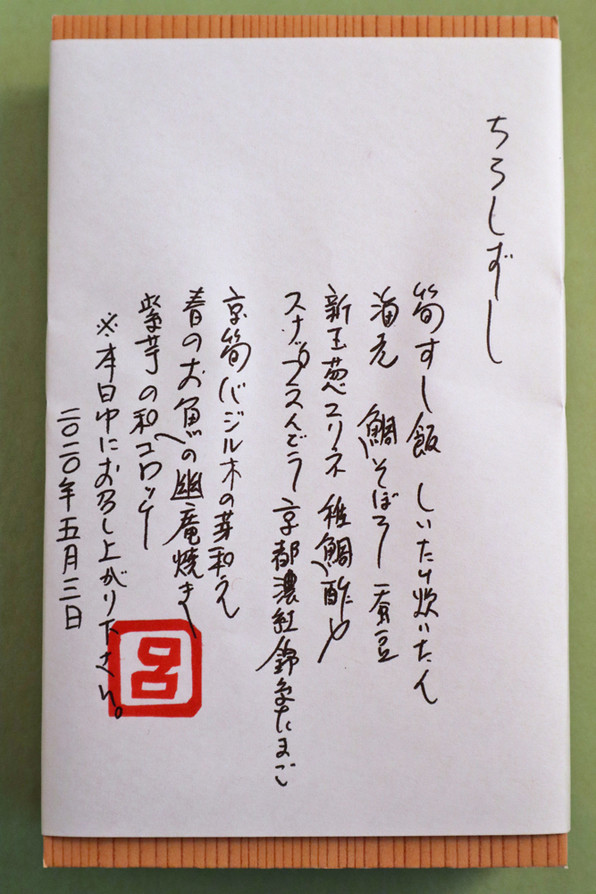 ちらしずし
筍すし飯 しいたけ炊いたん
海老 鯛そぼろ 蚕豆
新玉葱 ユリネ 稚鯛酢〆
スナップえんどう 京都濃紅錦糸たまご
京筍バジル木の芽和え
春のお魚の幽庵焼き
紫芋の和コロッケ
※本日中にお召し上がり下さい。
二〇二〇年五月三日
呂